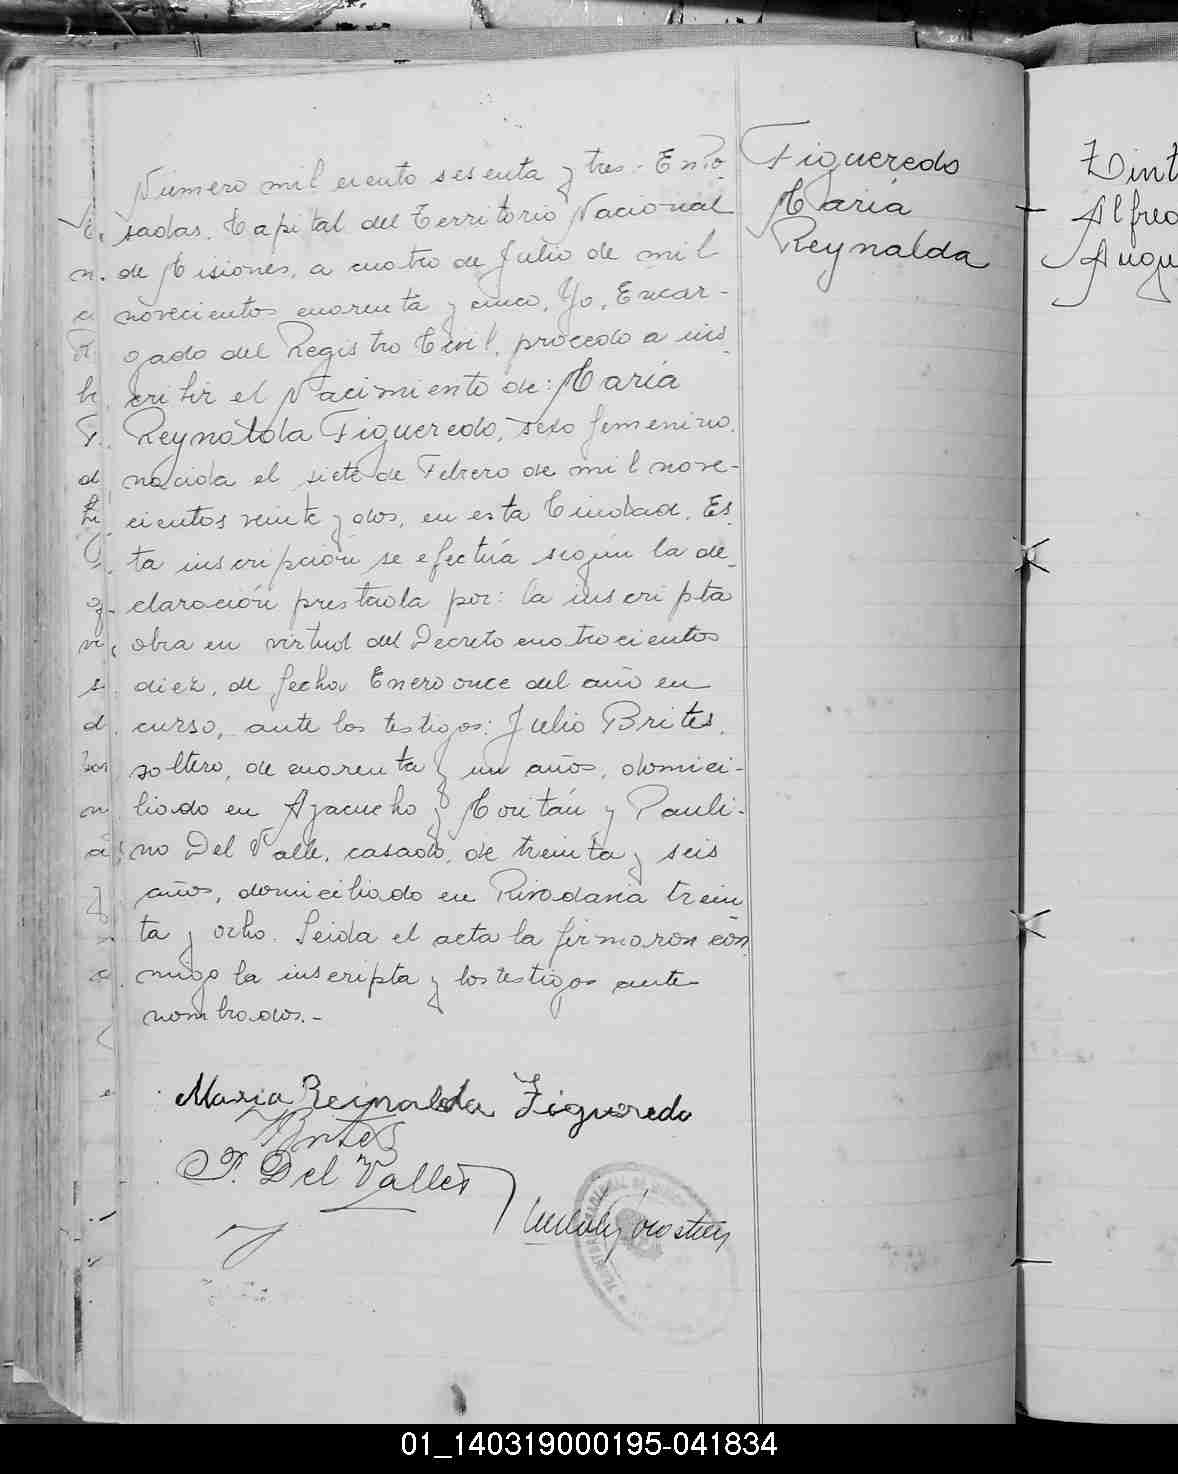 Número mil ciento sesenta y tres: En Po-
sadas, Capital del Territorio Nacional
de Misiones, a cuatro de Julio de mil
novecientos cuarenta y cinco, Yo, Encar-
gado del Registro Civil, procedo a ins-
cribir el Nacimiento de: María
Reynalda Figueredo, sexo femenino,
nacida el siete de Febrero de mil nove-
cientos veinte y dos, en esta Ciudad. Es-
ta inscripción se efectúa según la de-
claración prestada por: la inscripta
obra en virtud del Decreto cuatrocientos
diez, de fecha Enero once del año en
curso, ante los testigos: Julio Brites,
soltero, de cuarenta y un años, domici-
liado en Ayacucho y Moritán y Pauli-
no Del Valle, casado, de treinta y seis
años, domiciliado en Rivadavia trein
ta y ocho. Leida el acta la firmaron con
migo la inscripta y los testigos ante
nombrados.-
Figueredo
María
Reynalda
Maria Reinalda Figueredo
JBrites
P. Del Valle
Zint
Alfred
Augu
01_140319000195-041834